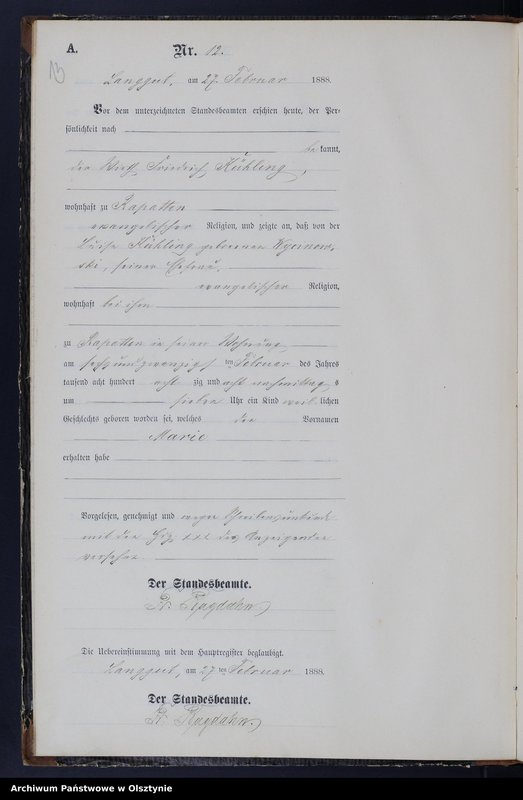 A.
Nr. 12.
13
Langgut, am 27. Februar 1888.
Vor dem unterzeichneten Standesbeamten erschien heute, der Per-
sönlichkeit nach
bekannt,
der Wirth Friedrich Kühling,
wohnhaft zu Rapatten
evangelischer Religion, und zeigte an, daß von der
Luise Kühling geborenen
ski, seiner Ehefrau,
evangelischer Religion,
wohnhaft bei ihm
zu Rapatten in seiner Wohnung
am sechsundzwanzigsten Februar des Jahres
tausend acht hundert achtzig und acht nachmittags
um sieben Uhr ein Kind weiblichen
Geschlechts geboren worden sei, welches den Vornamen
Marie
erhalten habe
Vorgelesen, genehmigt und wegen Schreibensunkunde
mit den xxx des Anzeigenden
versehen
Der Standesbeamte.
Die Uebereinstimmung mit dem Hauptregister beglaubigt.
Langgut, am 27ten Februar 1888.
Der Standesbeamte.
Archiwum Państwowe w Olsztynie